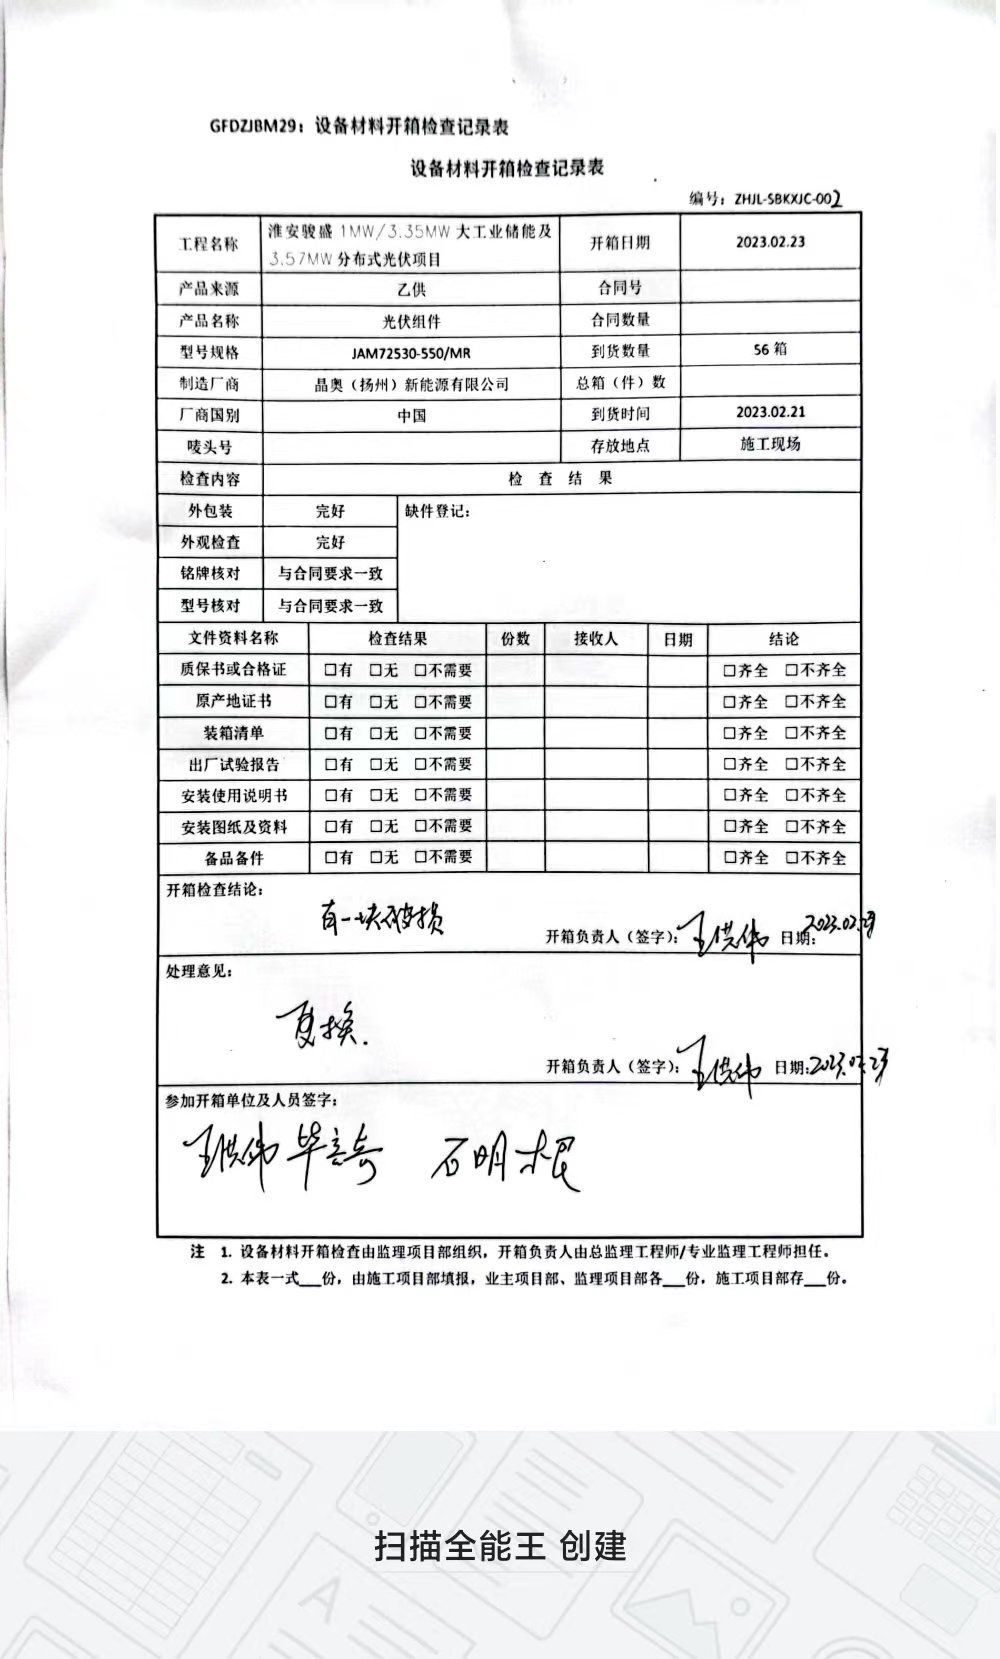 GFDZJBM29：设备材料开箱检查记录表
设备材料开箱检查记录表
编号：ZHJL-SBKXJC-002
工程名称 淮安骏盛 1MW/3.35MW 大工业储能及 开箱日期 2023.02.23
3.57MW 分布式光伏项目
产品来源 乙供 合同号
产品名称 光伏组件 合同数量
型号规格 JAM72530-550/MR 到货数量 56 箱
制造厂商 晶奥（扬州）新能源有限公司 总箱（件）数
厂商国别 中国 到货时间 2023.02.21
唛头号 存放地点 施工现场
检查内容 检 查 结 果
外包装 完好 缺件登记：
外观检查 完好
铭牌核对 与合同要求一致
型号核对 与合同要求一致
文件资料名称 检查结果 份数 接收人 日期 结论
质保书或合格证 □有 □无 □不需要 □齐全 □不齐全
原产地证书 □有 □无 □不需要 □齐全 □不齐全
装箱清单 □有 □无 □不需要 □齐全 □不齐全
出厂试验报告 □有 □无 □不需要 □齐全 □不齐全
安装使用说明书 □有 □无 □不需要 □齐全 □不齐全
安装图纸及资料 □有 □无 □不需要 □齐全 □不齐全
备品备件 □有 □无 □不需要 □齐全 □不齐全
开箱检查结论：
有一块破损
开箱负责人（签字）：王洪伟 日期：2023.02.23
处理意见：
更换.
开箱负责人（签字）：王洪伟 日期：2023.02.23
参加开箱单位及人员签字：
王洪伟 石明根
注 1. 设备材料开箱检查由监理项目部组织，开箱负责人由总监理工程师/专业监理工程师担任。
2. 本表一式___份，由施工项目部填报，业主项目部、监理项目部各___份，施工项目部存___份。
扫描全能王 创建